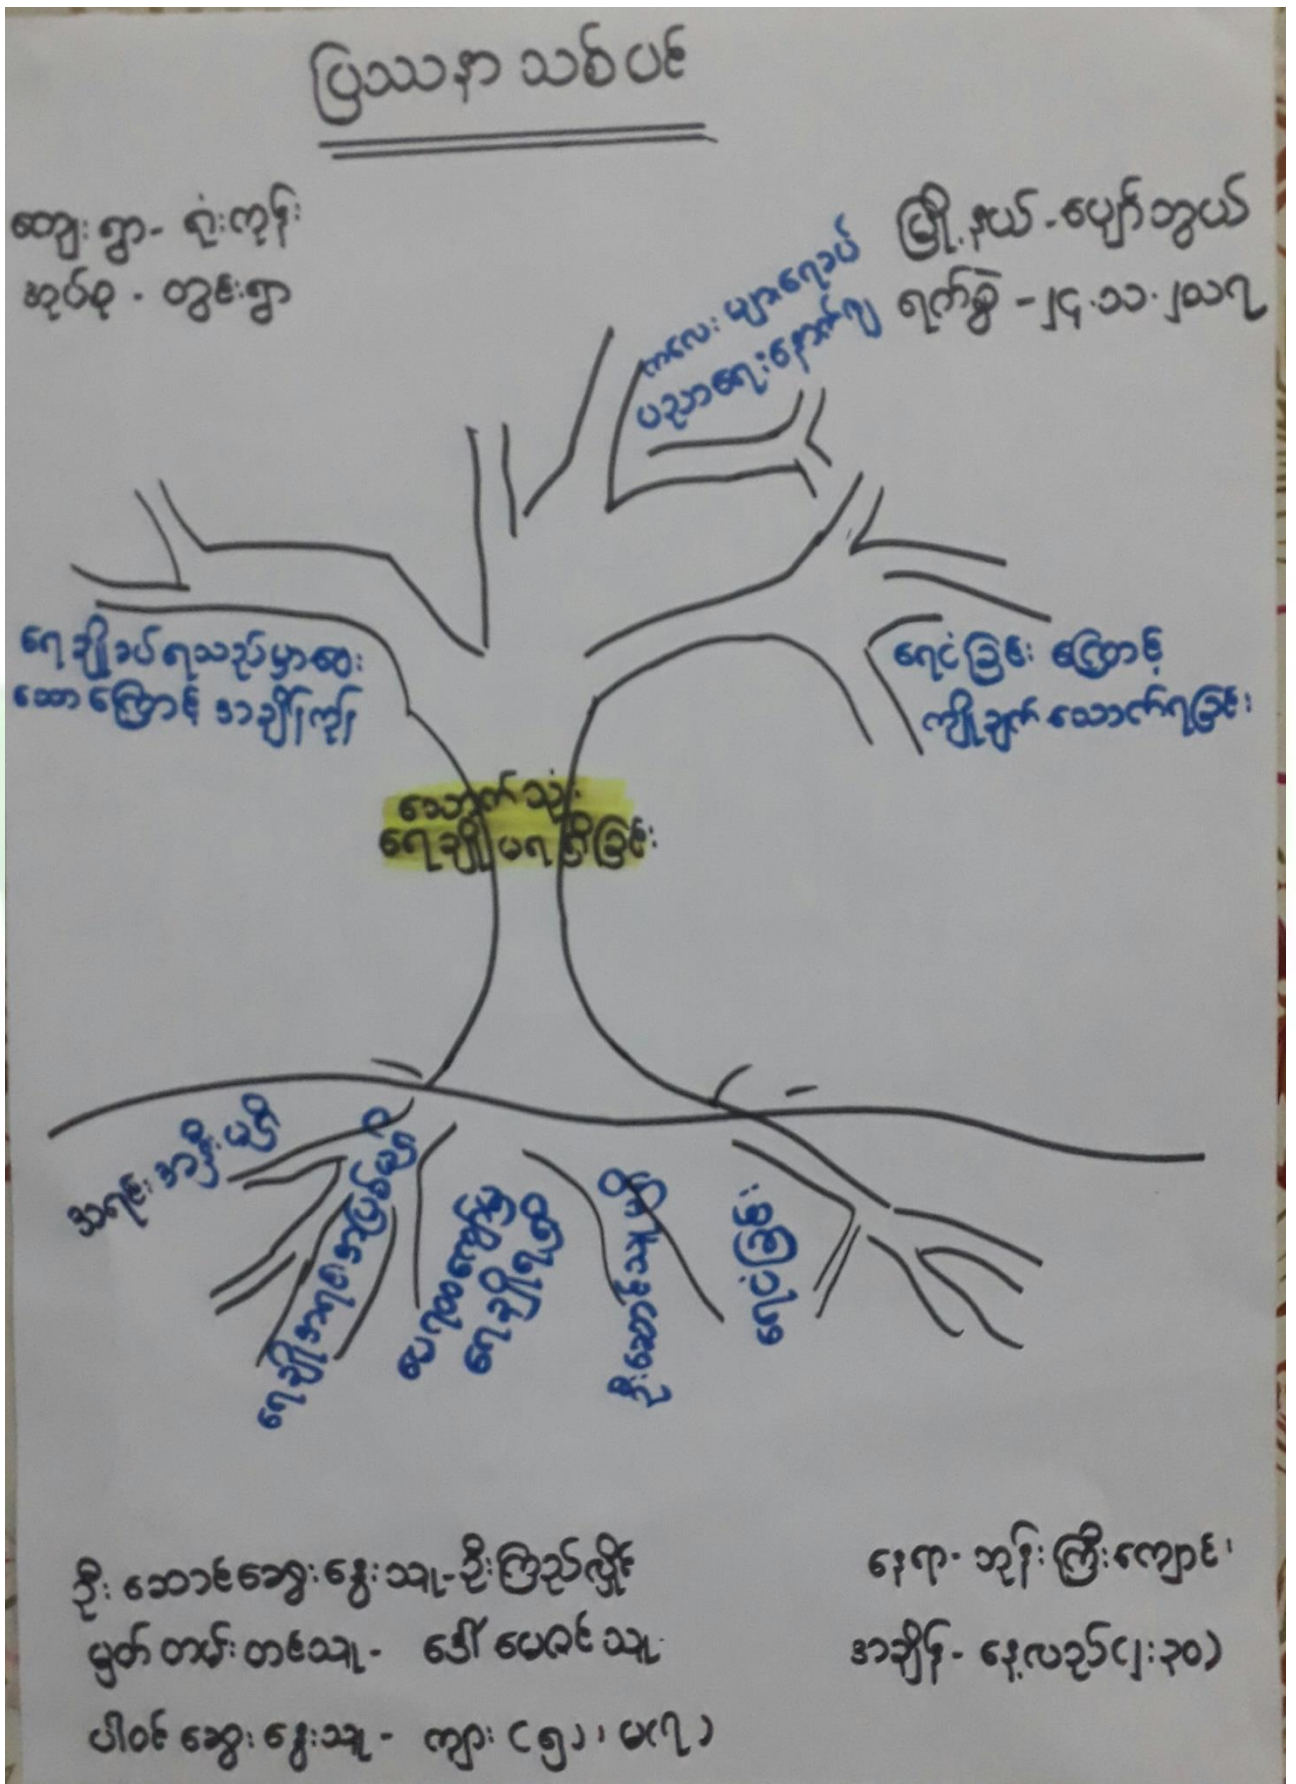 ပြဿနာ သစ်ပင်
ကျေးရွာ- ရုံးကုန်း
အုပ်စု - တွင်းရွာ
မြို့နယ် - ပျော်ဘွယ်
ရက်စွဲ - ၂၄.၁၁.၂၀၁၇
ကလေးများရေခပ်
ပညာရေးနောက်ကျ
ရေချိုခပ်ရသည်မှာဝေး
သောကြောင့် အချိန်ကုန်
ရေငံခြင်း ကြောင့်
ကျိုချက် သောက်ရခြင်း
သောက်သုံး
ရေချို မရရှိခြင်း
အရင်းအနှီး မရှိ
ရေချိုအရင်းအမြစ်မရှိ
ရေချိုရရှိ
ဦးဆောင်သူမရှိ
ရေငံခြင်း
ဦးဆောင်ဆွေးနွေးသူ-ဦးကြည်လှိုင်
မှတ်တမ်းတင်သူ- ဒေါ်မေဇင်သူ
ပါဝင်ဆွေးနွေးသူ- ကျား (၅)၊ မ(၇)
နေရာ- ဘုန်းကြီးကျောင်း
အချိန်- နေ့လည်(၂:၃၀)